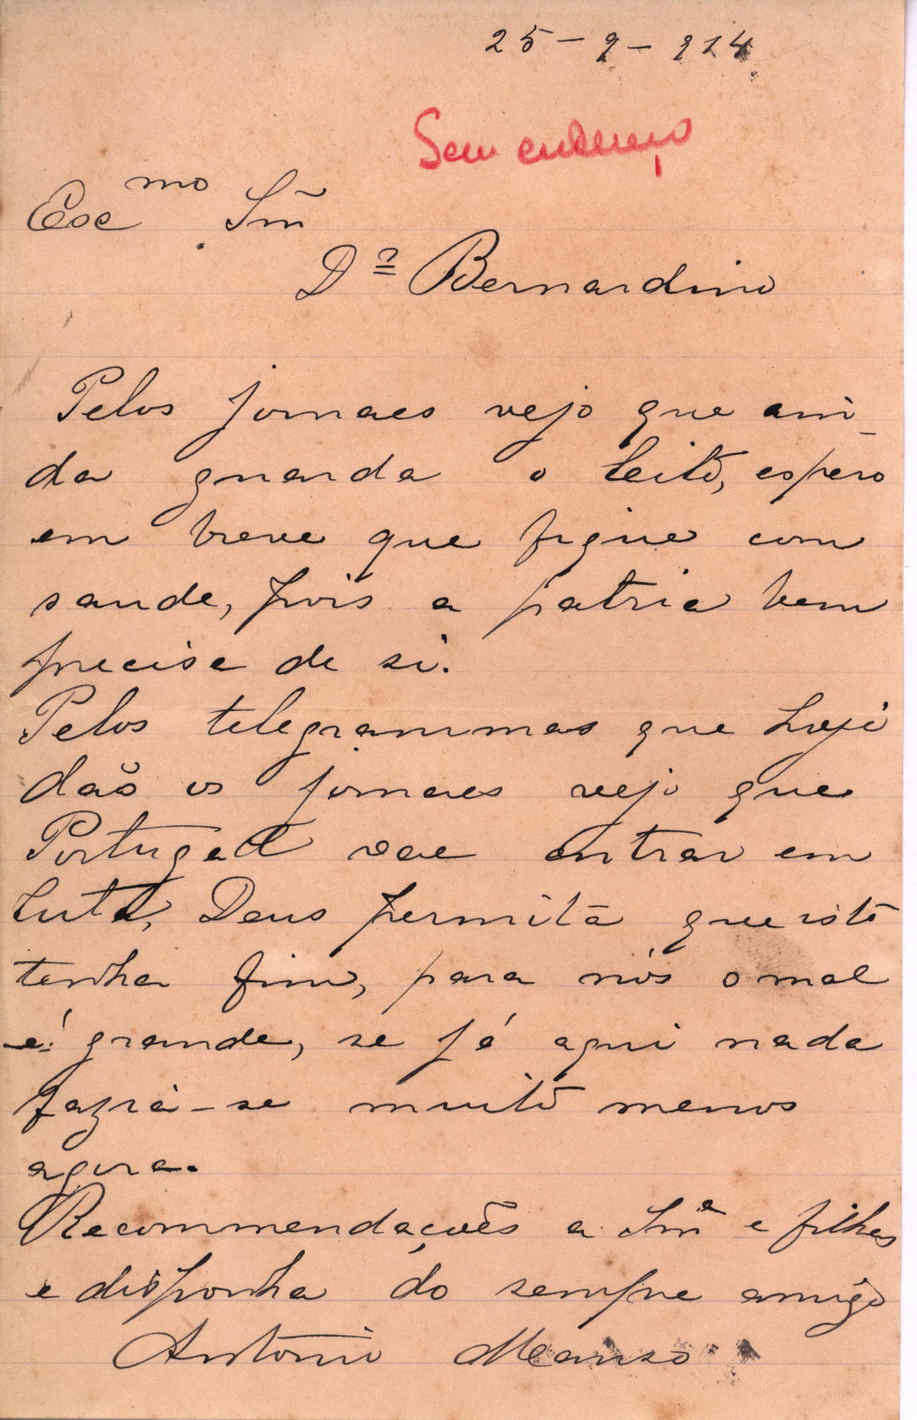 25-9-914
Sem endereço
Exc mo Snr
Dr Bernardino
Pelos jornaes vejo que ain-
da guarda o leito, espero
em breve que fique com
saude, pois a patria bem
precisa de si.
Pelos telegrammas que hoje
dão os jornaes vejo que
Portugal vae entrar em
luta, Deus permita que isto
tenha fim, para nós o mal
é grande, se já aqui nada
fazia-se muito menos
agora.
Recommendações a Snra e filhas
e disponha do sempre amigo
Antonio Manso